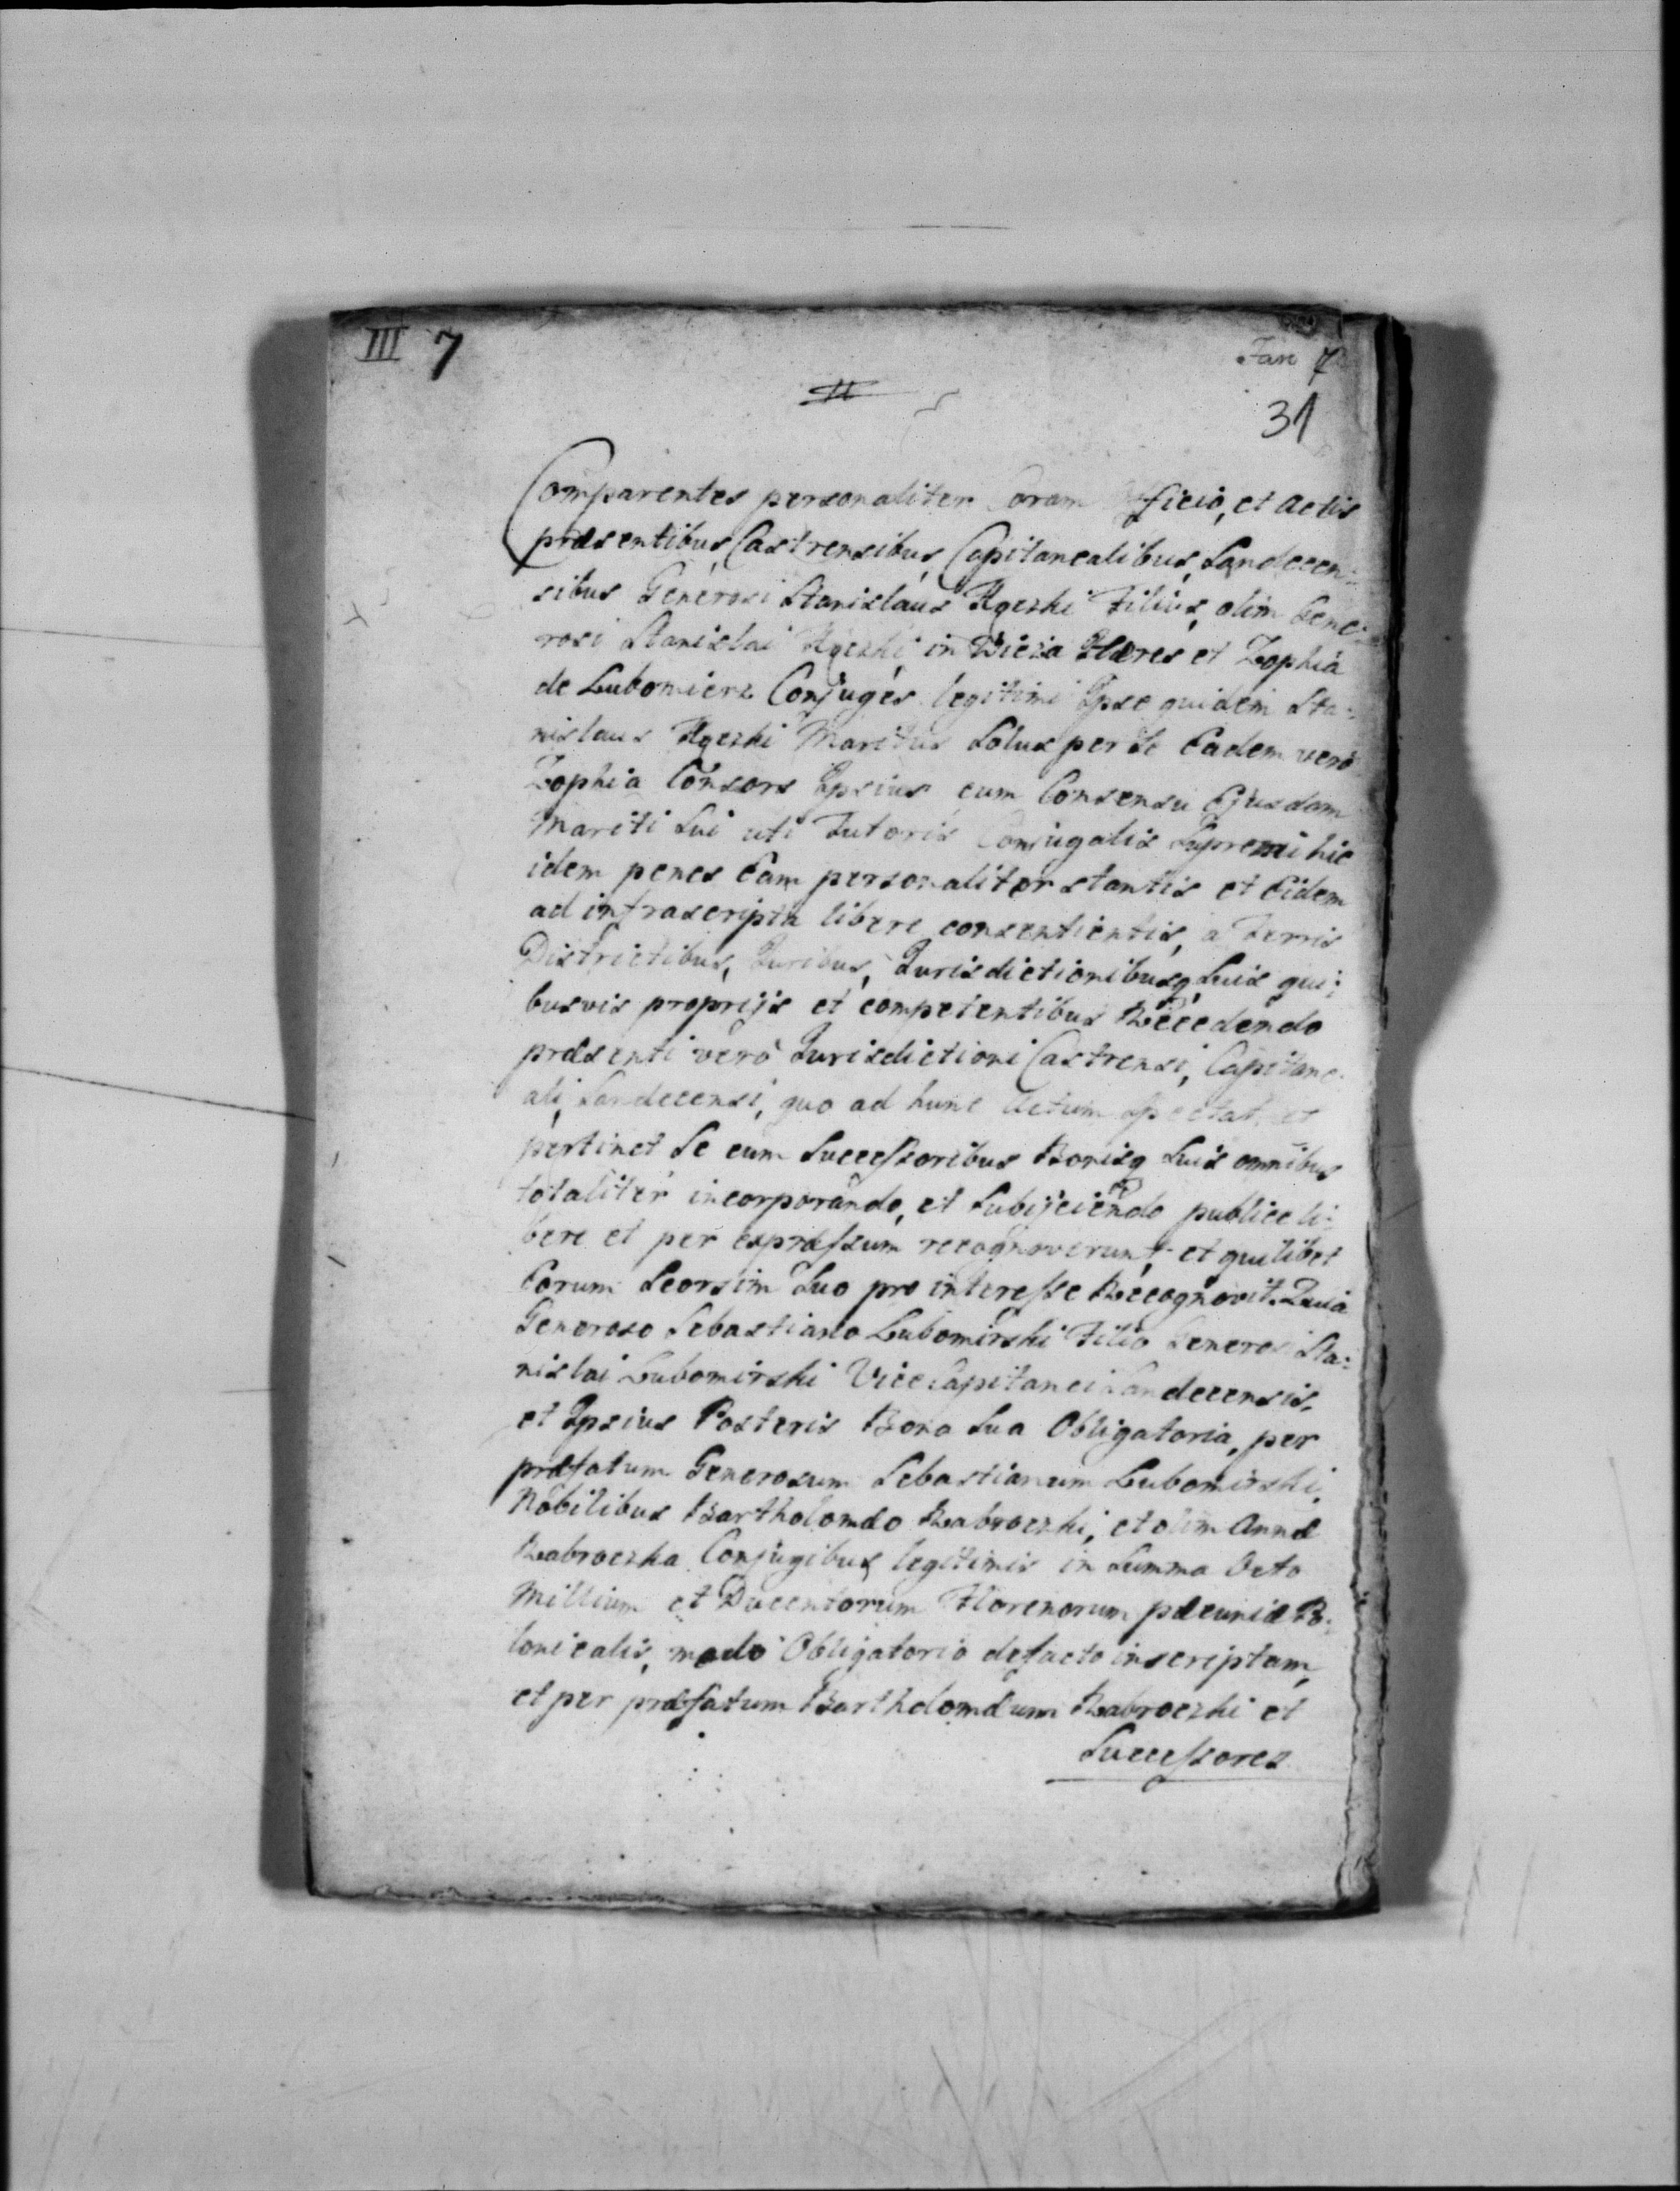 III 7
Fasc 7
31
Comparentes personaliter Coram Officio, et Actis
præsentibus, Castrensibus, Capitanealibus, Sandecen:
sibus Generosi Stanislaus Kęczki Filius, olim Gene:
rosi Stanislai Kęczki, in Bieża Hæres et Zophia
de Lubomierz Conjuges legitimi Ipse quidem Sta:
nislaus Kęczki Maritus Solus per Se Eadem verò
Zophia Consors Ipsius cum Consensu Ejusdem
Mariti Sui uti Tutoris Conjugalis Supremi hic
idem penes Eam personaliter stantis et Eidem
ad infrascripta libere consentientis, a Terris
Districtibus, Juribus, Jurisdictionibusq Suis qui:
busvis proprijs et competentibus Recedendo
præsenti verò Jurisdictioni Castrensi, Capitane:
ali, Sandecensi, quo ad hunc Actum Spectat, et
pertinet Se cum Successoribus Bonisq Suis omnibus
totaliter incorporando, et Subijciendo publice li:
bere et per expressum recognoverunt, et quilibet
Eorum Seorsim Suo pro interesse Recognovit. Quia
Generoso Sebastiano Lubomirski Filio Generosi Sta:
nislai Lubomirski Vice Capitanei Sandecensis,
et Ipsius Posteris Bona Sua Obligatoria, per
præfatum Generosum Sebastianum Lubomirski,
Nobilibus Bartholomæo Rabroczki, et olim Annæ
Rabroczka Conjugibus legitimis in Summa Octo
Millium et Ducentorum Florenorum pæcuniæ Po:
lonicalis, modo Obligatorio defacto inscriptam,
et per præfatum Bartholomæum Rabroczki et
Successores